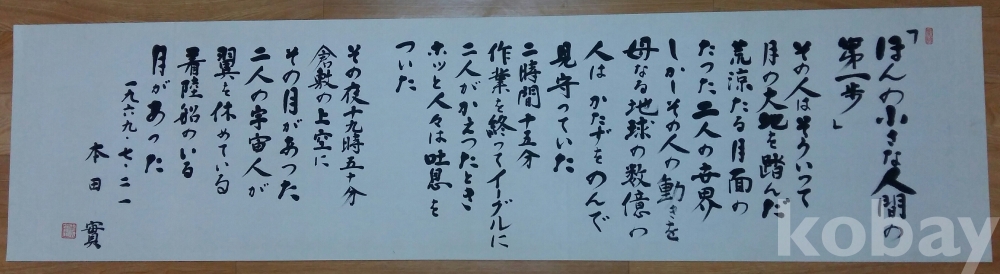 「ほんの小さな人間の
第一歩」
その人はそういって
月の大地を踏んだ
荒涼たる月面の
たった二人の世界
しかしその人の動きを
母なる地球の数億の
人は かたずをのんで
見守っていた
二時間十五分
作業を終ってイーグルに
二人がかえったとき
ホッと人々は吐息を
ついた
その夜十九時五十分
倉敷の上空に
その月があった
二人の宇宙人が
翼を休めている
着陸船のいる
月があった
一九六九・七・二一
本田 實
kobay